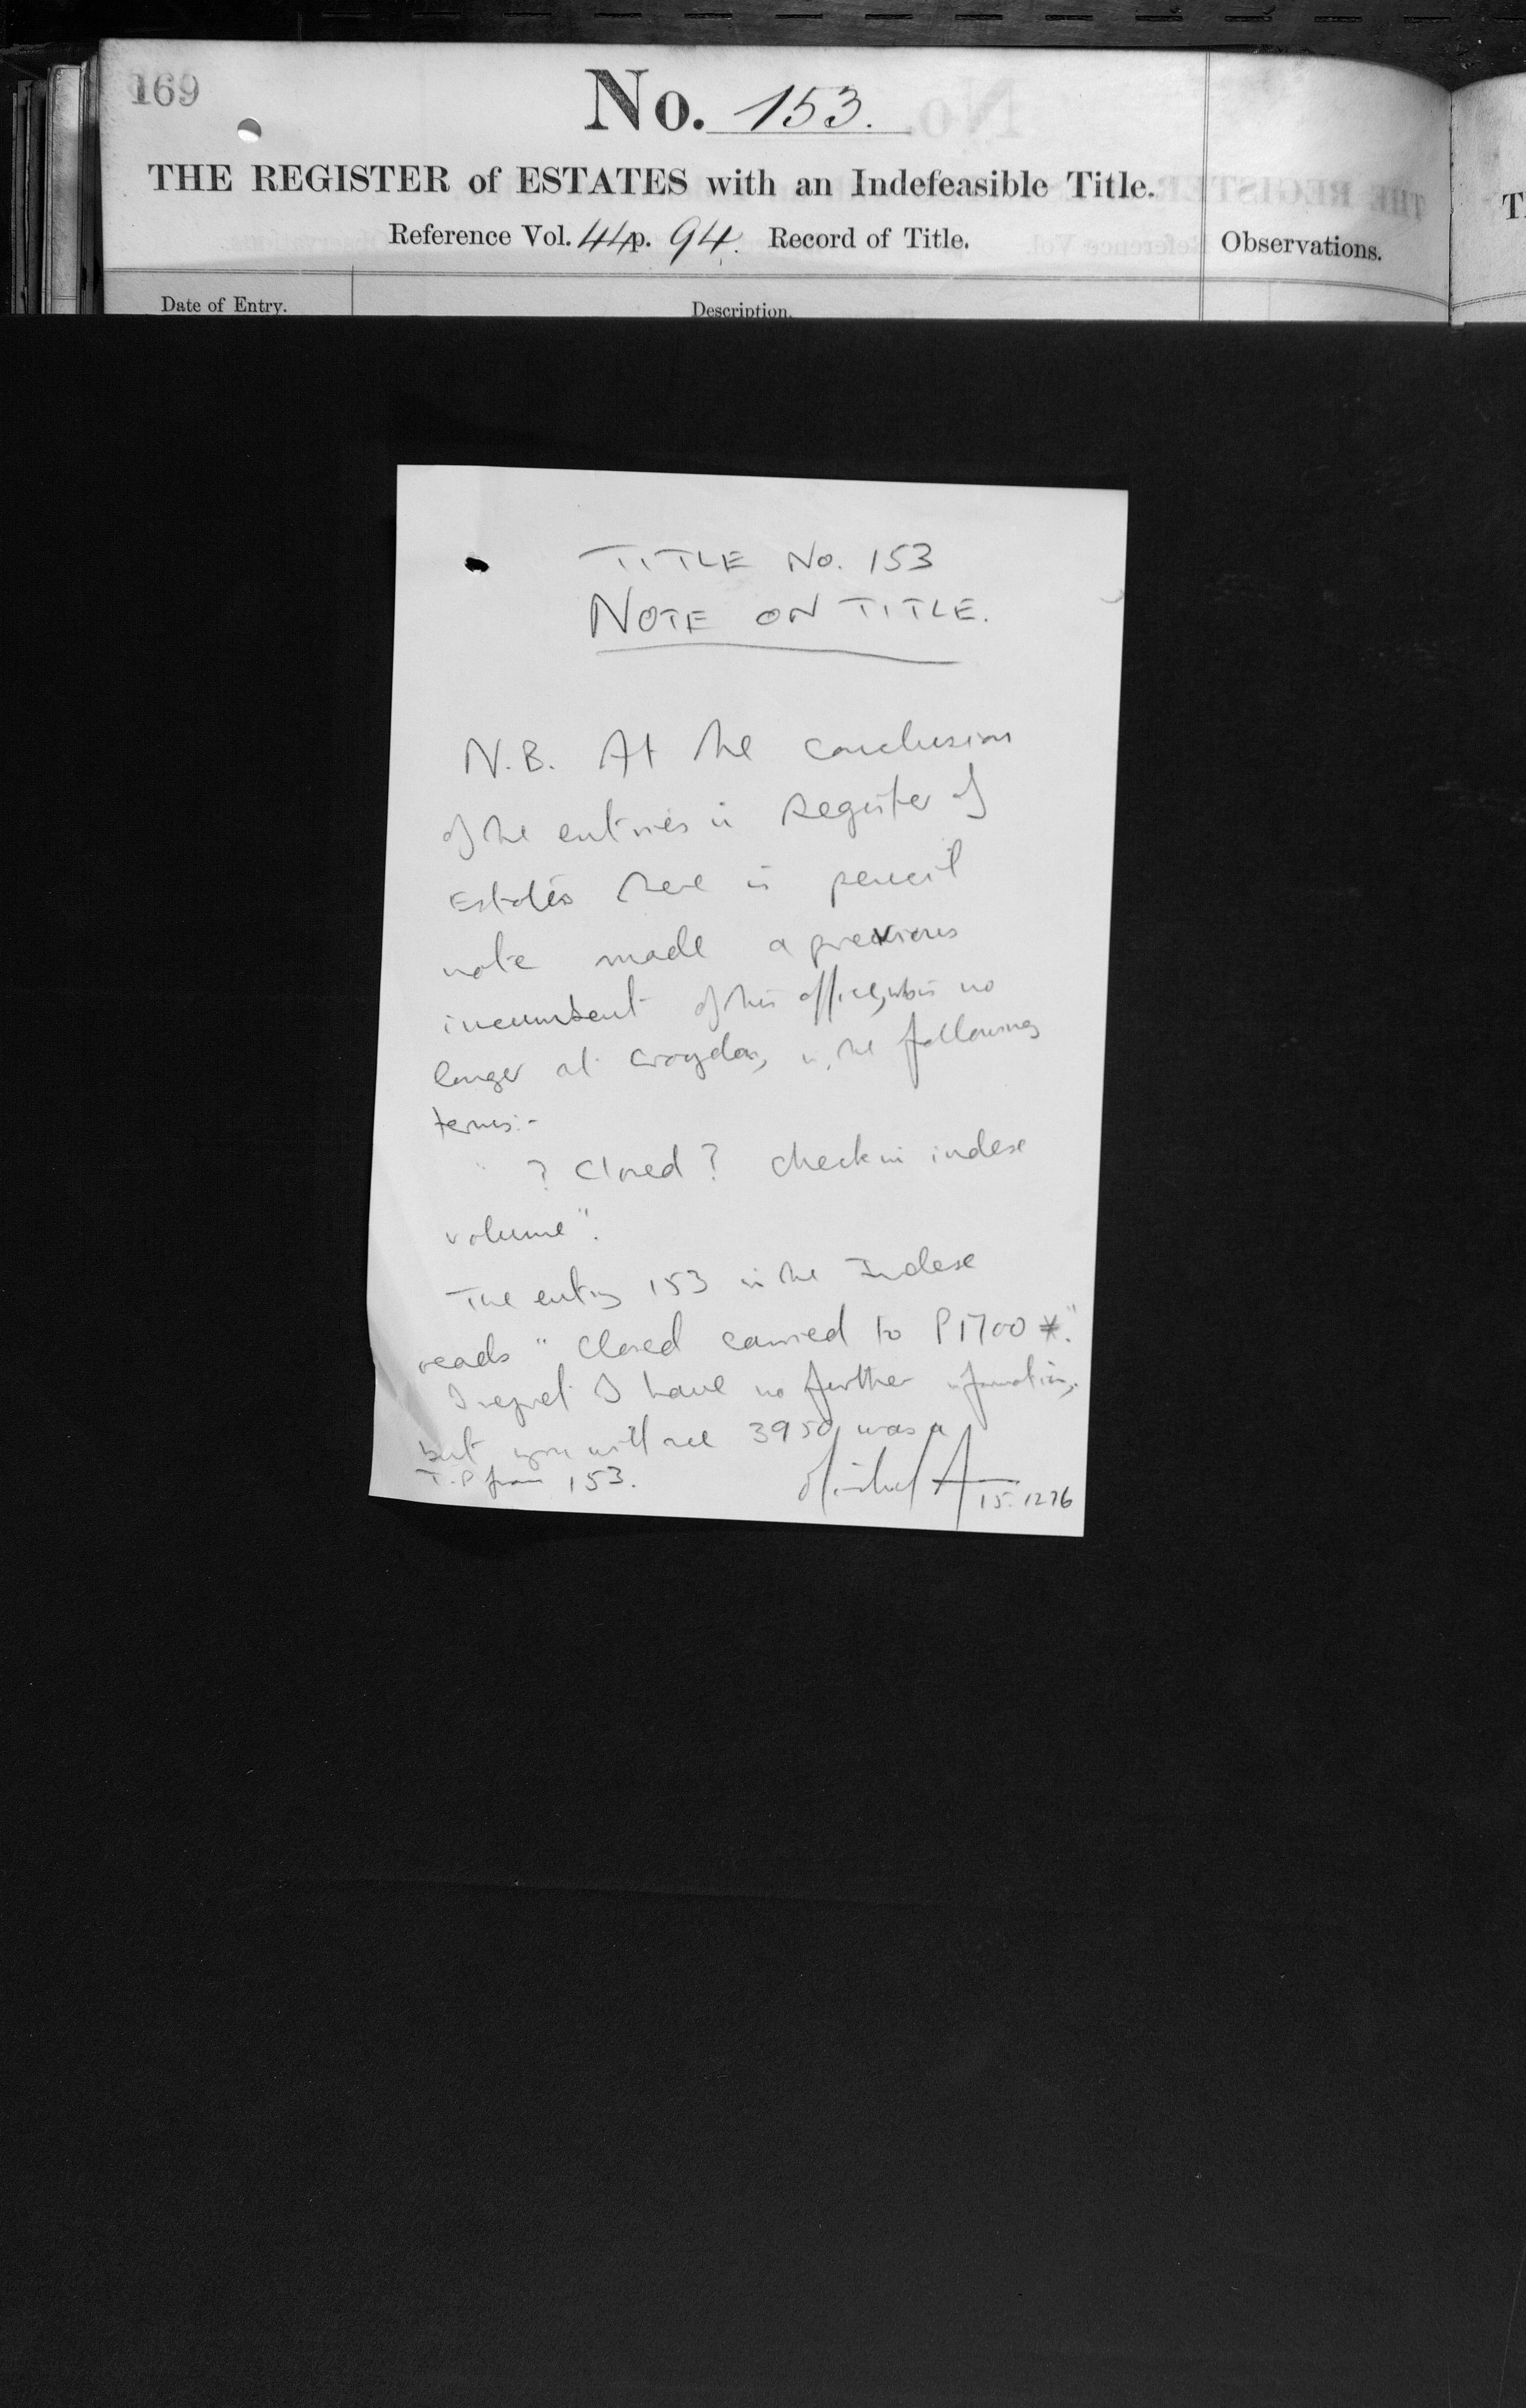 169
No. 153.
THE REGISTER of ESTATES with an Indefeasible Title.
Reference Vol. 44 p. 94. Record of Title.
Observations.
Date of Entry.
Description.
TITLE No. 153
NOTE ON TITLE.
N.B. At the conclusion
of the entries in Register of
Estates there is pencil
note made a previous
incumbent of this office, who is no
longer at Croydon, in the following
terms:-
? Closed? Check in index
volume".
The entry 153 in the Index
reads "Closed carried to P1700 *."
I regret I have no further information,
but you will see 3950 was a
T.P from 153.
Michael
15.12.76